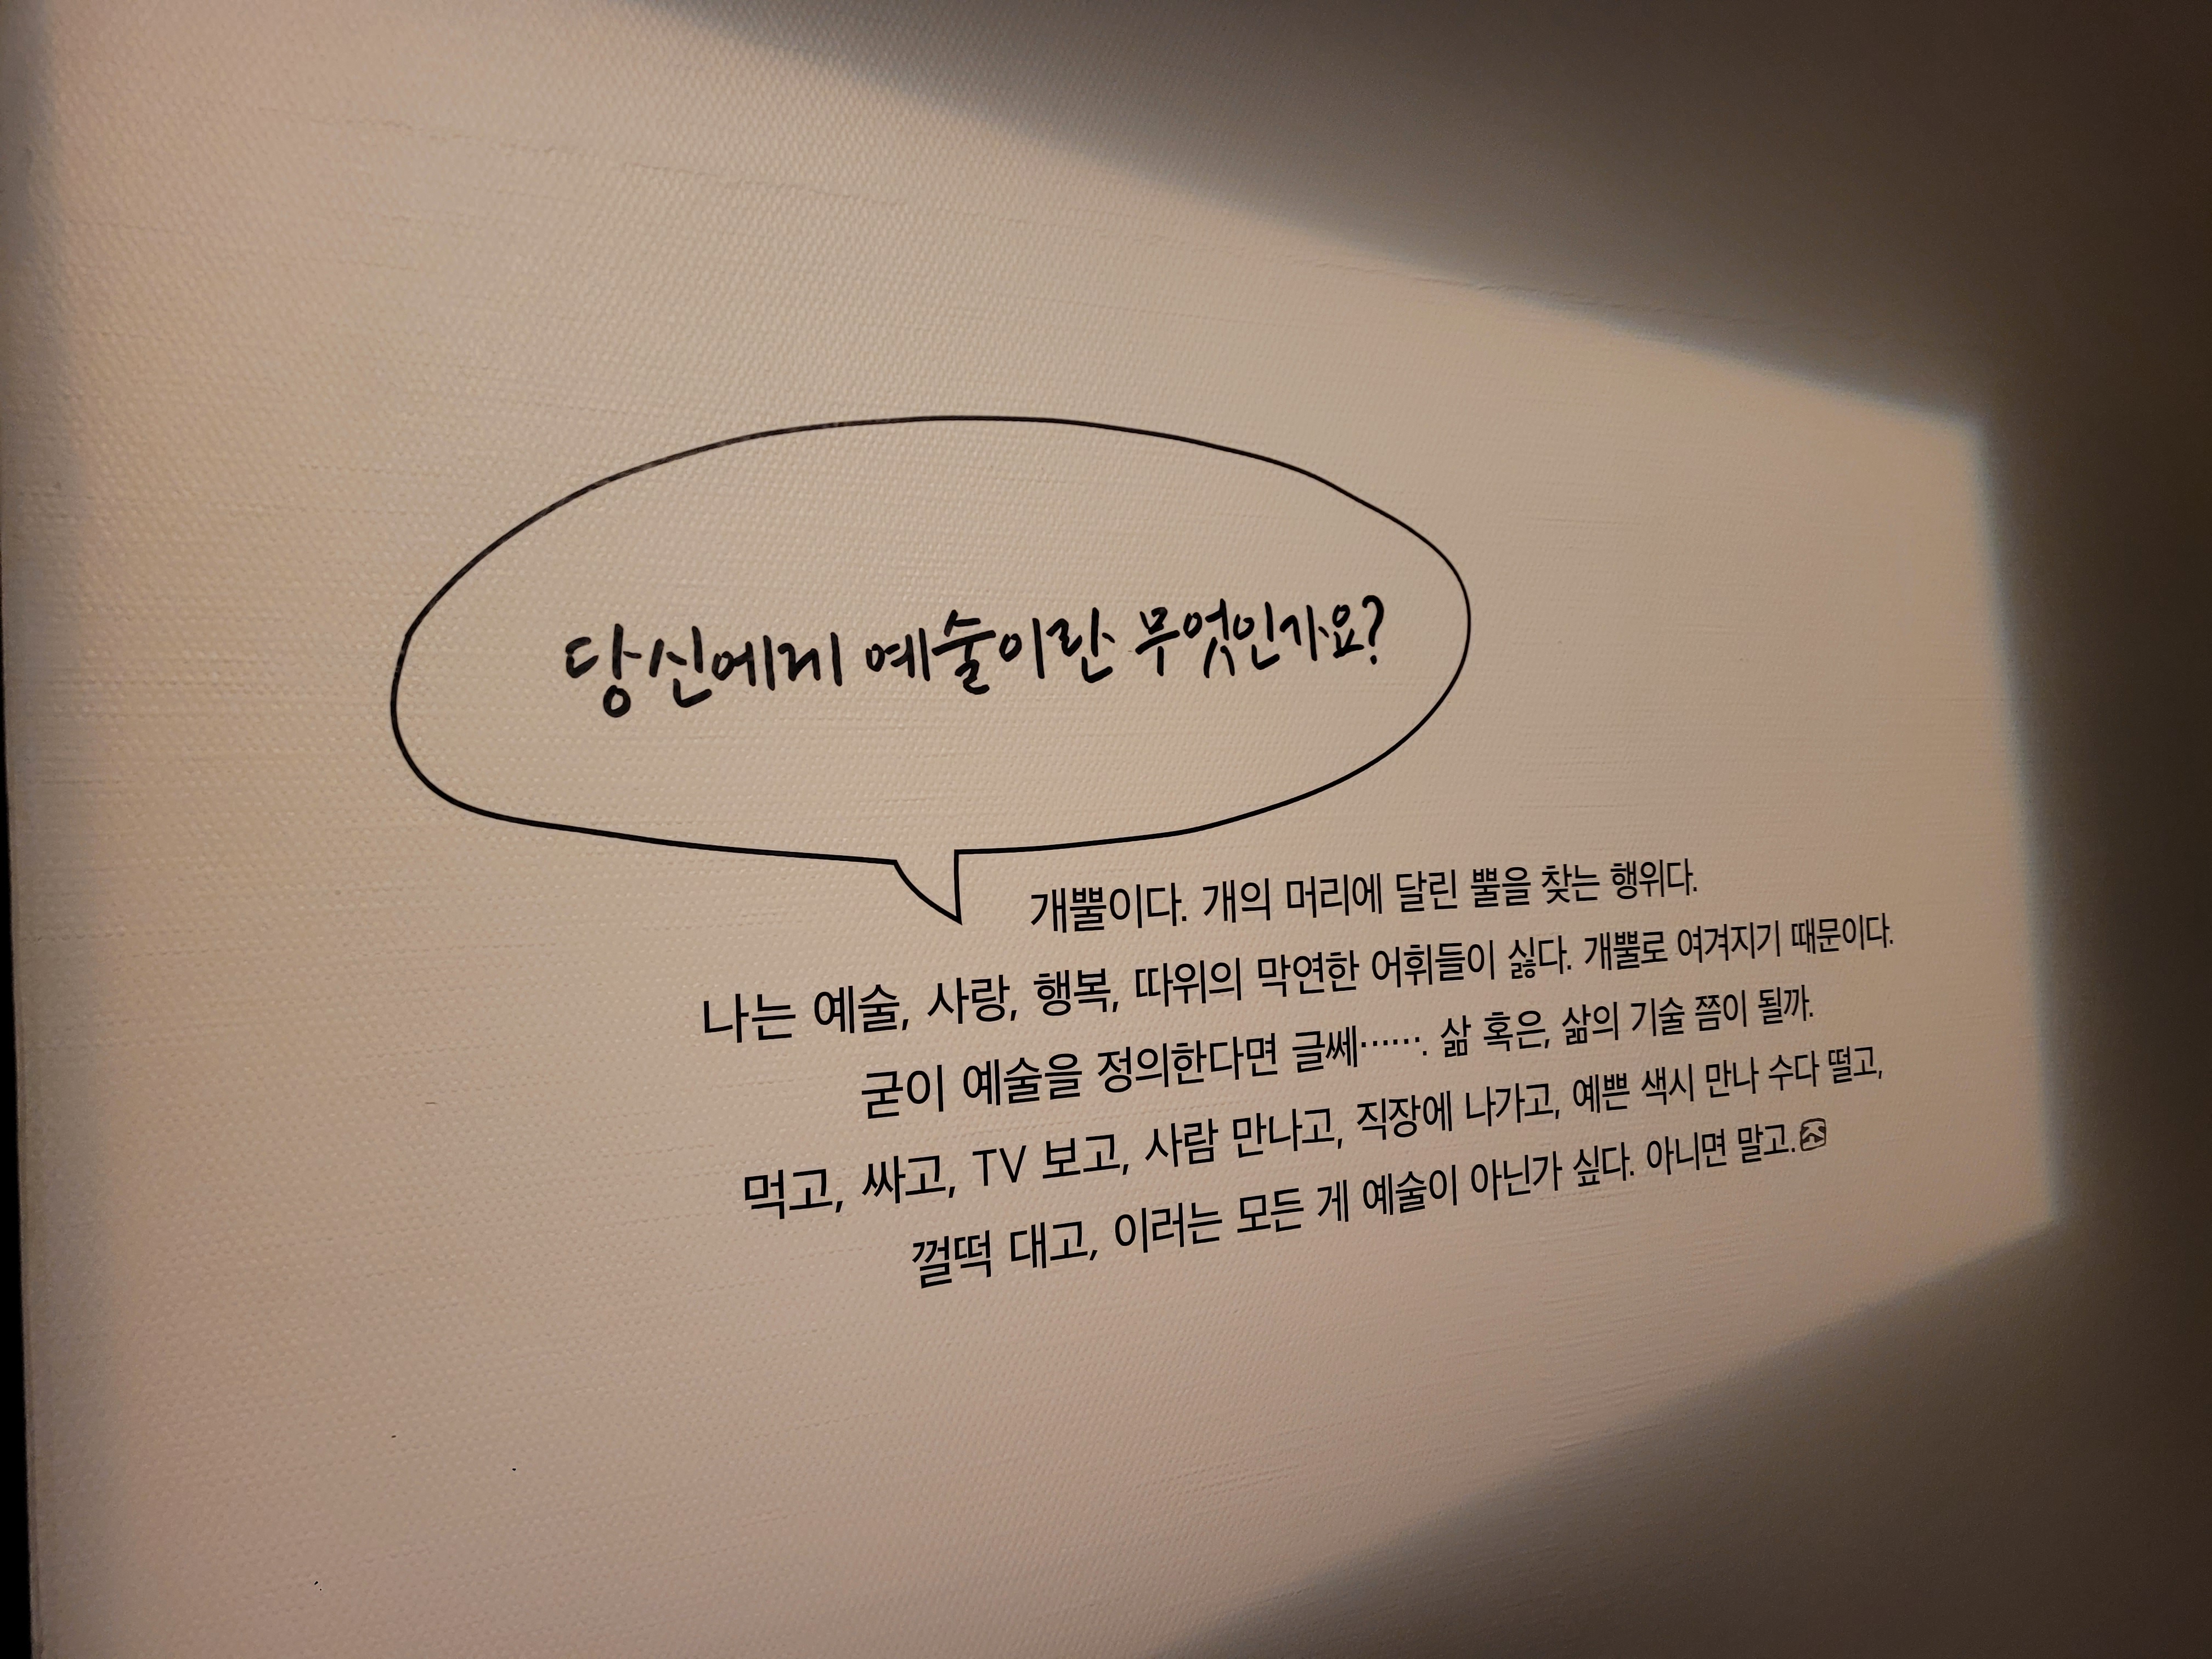 당신에게 예술이란 무엇인가요?
개뿔이다. 개의 머리에 달린 뿔을 찾는 행위다.
나는 예술, 사랑, 행복, 따위의 막연한 어휘들이 싫다. 개뿔로 여겨지기 때문이다.
굳이 예술을 정의한다면 글쎄……. 삶 혹은, 삶의 기술 쯤이 될까.
먹고, 싸고, TV 보고, 사람 만나고, 직장에 나가고, 예쁜 색시 만나 수다 떨고,
껄떡 대고, 이러는 모든 게 예술이 아닌가 싶다. 아니면 말고.